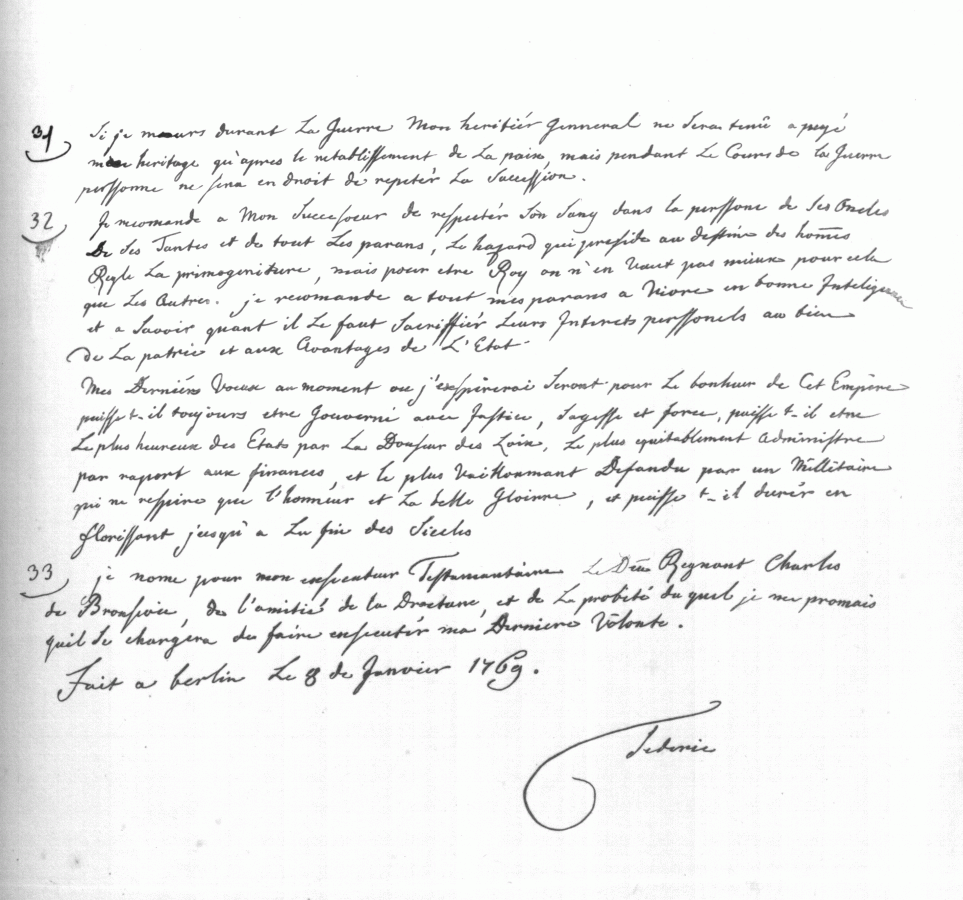 31) Si je meurs durant La Guerre Mon heritiér Genneral ne Sera tenû a peyé
mon heritage qu'apres le retablissement de La paix, mais pendant Le Cours de la Guerre
perssonne ne sera en droit de repetér La Succession.
32) Je recomande a Mon Successeur de respectér Son Sang dans la perssone de Ses Oncles
De Ses Tantes et de tout Les parans, Le hazard qui preside au destin des homes
Regle La primogeniture, mais pour etre Roy on n'en Vaut pas mieux pour cela
que Les Autres. je recomande a tout mes parans a Vivre en bonne Inteligence
et a Savoir quant il Le faut Sacriffiér Leurs Interets perssonels au bien
de La patrie et aux Avantages de L'Etat.
Mes Derniérs Voeux au moment ou j'exspirerai Seront pour Le bonheur de Cet Empire
puisse t-il toujours etre Gouverné avec Justice, Sagesse et force, puisse t-il etre
Le plus heureux des Etats par La Douseur des Loix, Le plus equitablement Administre
par raport aux finances, et le plus Vaillamant Defandu par un Millitaire
qui ne respire que l'honneur et La belle Gloire, et puisse t-il durér en
florissant jusqu'a La fin des Siecles
33) je nome pour mon exsecuteur Testamantaire Le Duc Regnant Charles
de Bronsvic, de l'amitié de la Droeture, et de La probité du quel je me promais
quil Se chargera de faire exsecutér ma Derniere Volonte.
Fait a berlin Le 8 de Janvier 1769.
Federic